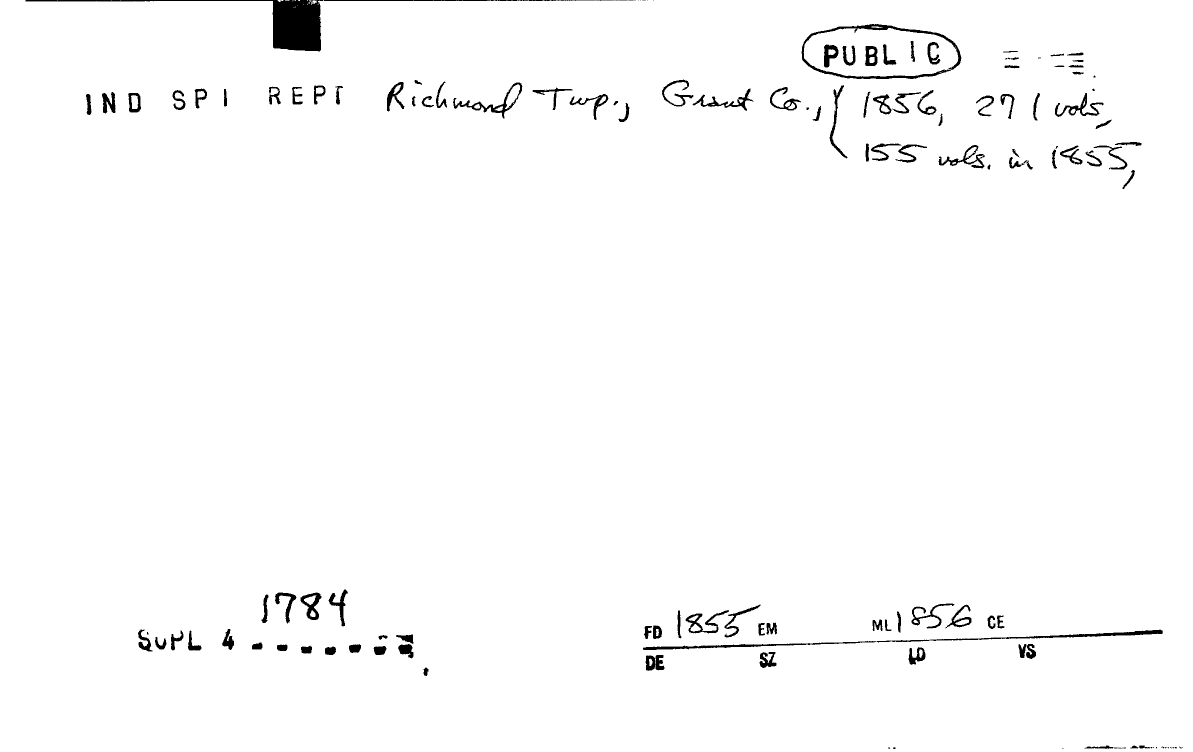 PUBLIC
IND SPI REPT Richmond Twp., Grant Co., 1856, 271 vols,
155 vols. in 1855,
1784
SUPL 4
FD 1855 EM ML 1856 CE
DE SZ LD VS